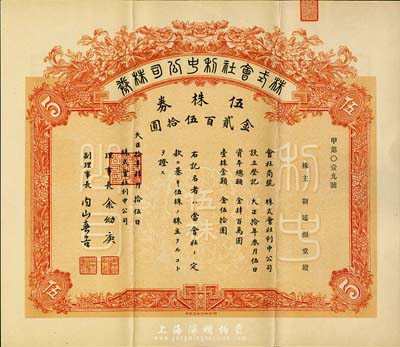 株式會社利中公司株券
伍株券
金貳百伍拾圓
甲第〇壹九號
株主 謝廷䫙堂殿
會社商號 株式會社利中公司
設立登記 大正拾年叁月伍日
資本總額 金拾百萬圓
壹株金額 金伍拾圓
右記名者ハ當會社ノ定
款ニ基キ伍株ノ株主タルコト
ヲ證ス
大正拾年 月拾伍日
株式會社利中公司
理事長 余幼庚
副理事長 內山
伍
5
伍
5
伍株
上海陽明拍賣